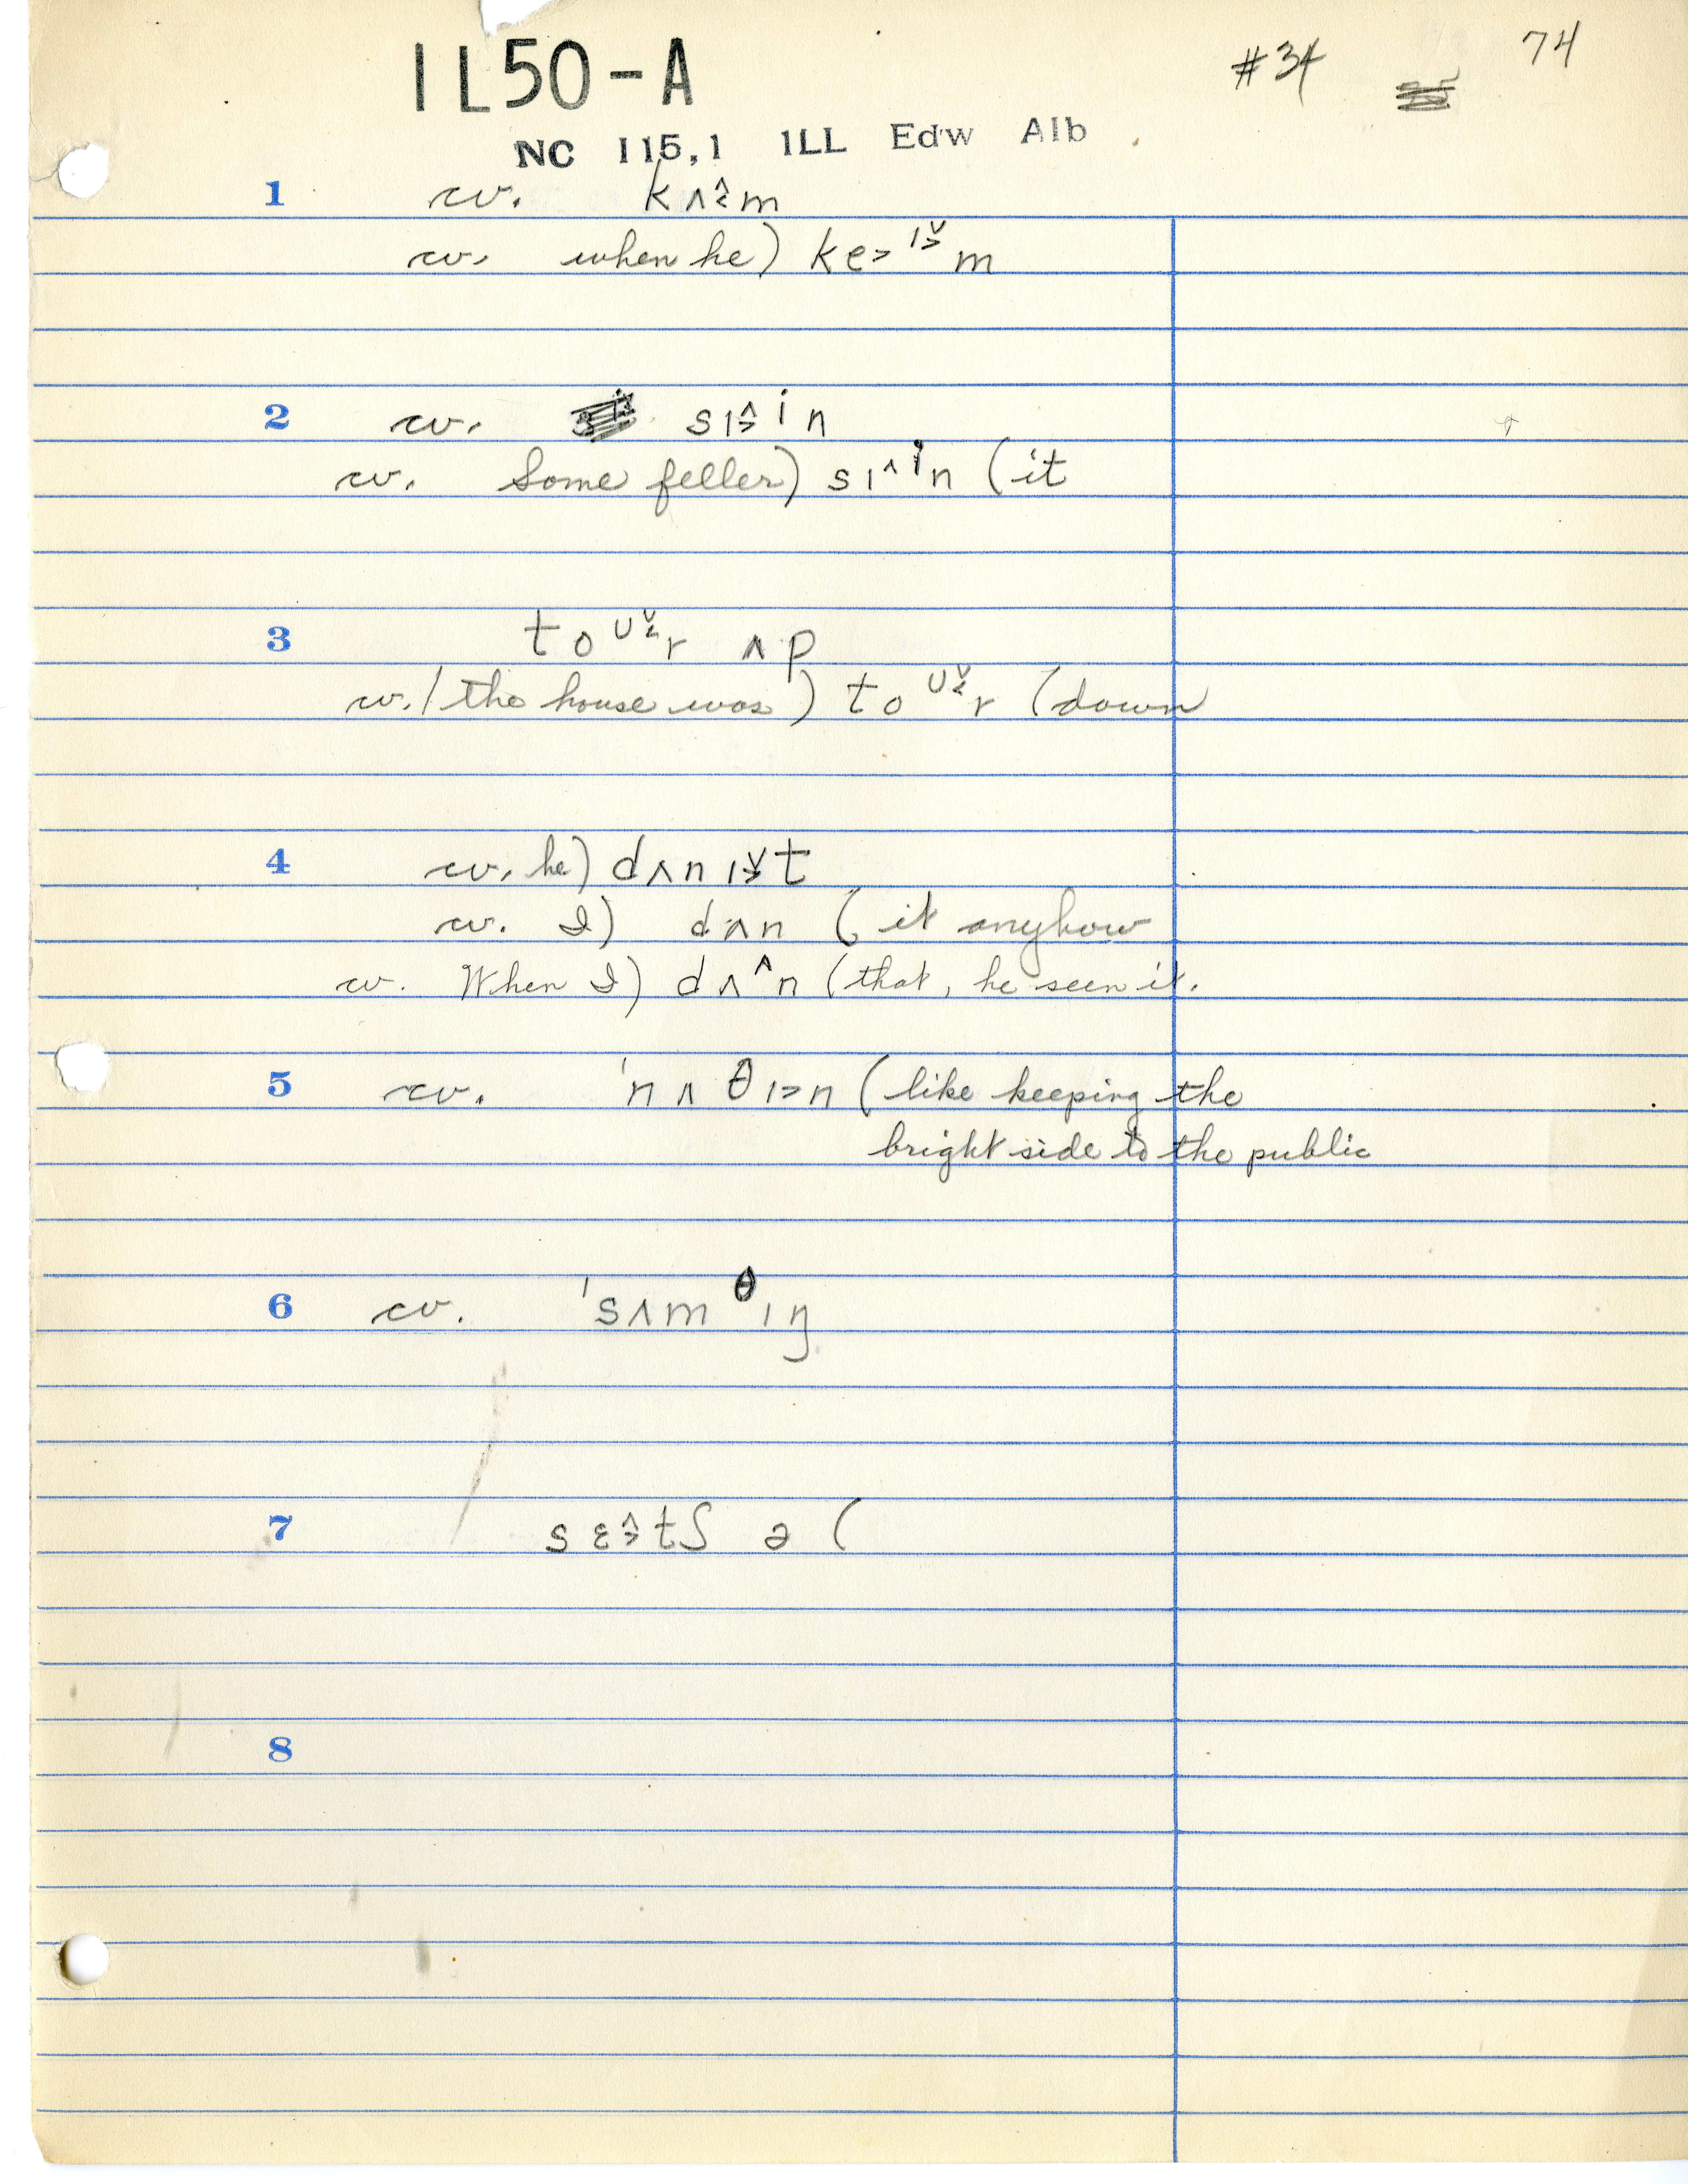 IL50-A #34 74
NC 115,1 ILL Edw Alb
1 cv. kʌ˄˂m
cv. when he) ke˃ɪ˅˃m
2 cv. sɪ˄˃in
cv. Some feller) sɪ˄in (it
3 toʊ˅˂r ʌp
cv./ the house was) toʊ˅˂r (down
4 cv. he) dʌnɪ˅˃t
cv. I) dʌn (it anyhow
cv. When I) dʌ˄n (that, he seen it.
5 cv. 'nʌθɪ˃n (like keeping the
bright side to the public
6 cv. 'sʌmθɪŋ
7 sɛ˄˃tʃ ə (
8